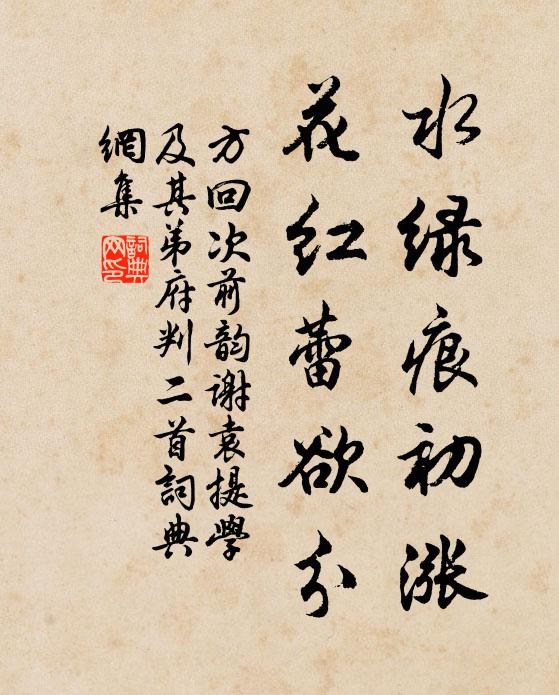 水绿痕初涨
花红蕾欲分
方回次前韵谢袁提学
及其弟府判二首詞典
網集
詞典网印